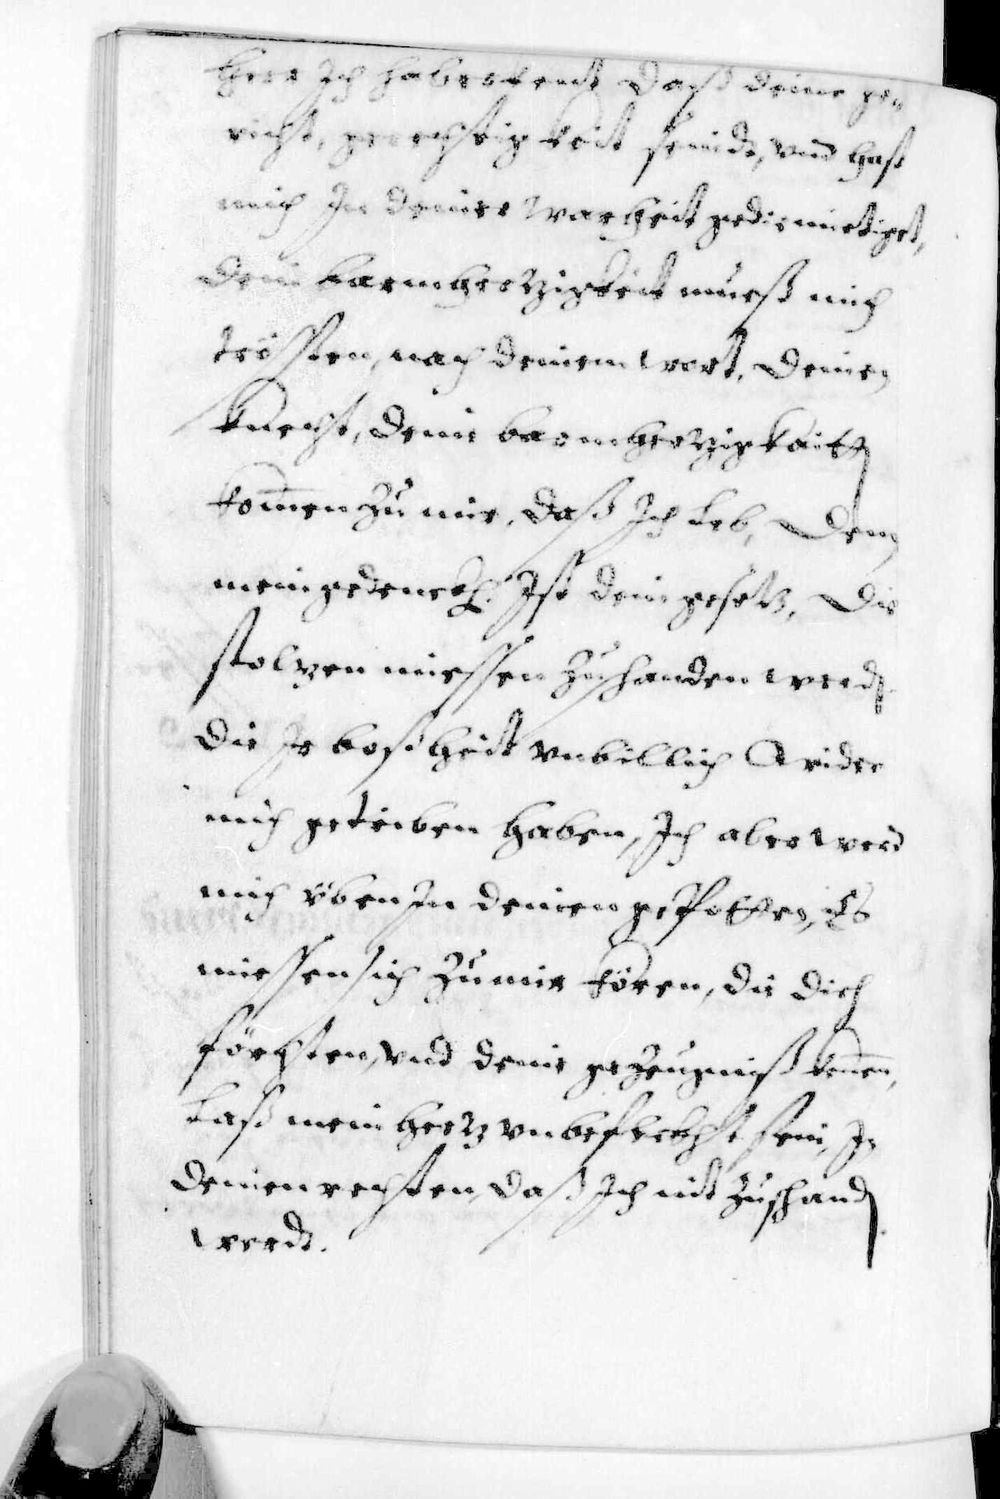 Herr Ich hab erkent daß deine ge„
richt, gerechtigkeit seindt, vnd hast
mich In deiner Warheit gediemietiget,
dein barmhertzigkeit mueß mich
trösten, nach deinem wort, deinen
knecht, deine barmhertzigkaitt
komen Zu mir, daß Ich leb, denn
mein gedenckh Ist dein gesetz, Die
stoltzen miessen Zuschanden werdn
die Ir boßheit vnbillich Wider
mich getriben haben, Ich aber werd
mich yben In deinen gepotten, Es
miessen sich Zu mir kören, die dich
förchten, vnd deine gezeugniß kenen,
Laß mein hertz vnbefleckht sein, In
deinen rechten, daß Ich nit Zuschandn
werdt.